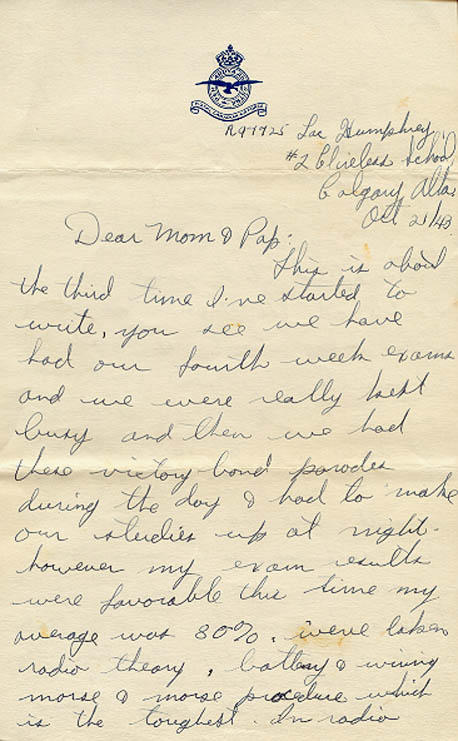 ROYAL CANADIAN AIR FORCE
R97725 Lac Humphrey
#2 Wireless School
Calgary Alta.
Oct 21/43
Dear Mom & Pap:
This is about
the third time I've started to
write, you see we have
had our fourth week exams
and we were really kept
busy and then we had
these victory bond parades
during the day & had to make
our studies up at night.
however my exam results
were favorable this time my
average was 80%. weve taken
radio theory, battery & wiring
morse & morse procedure which
is the toughest. In radio